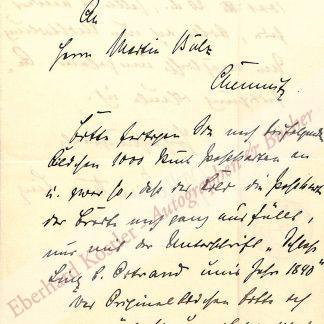 An
Herrn Martin Bülz
Chemnitz.
Bitte fertigen Sie nach beifolgendem
Bildchen 1000 Stück Postkarten an
u. zwar so, daß der Bild die Postkarte
der Breite nach ganz ausfüllt,
nur mit der Unterschrift „Schloß
ums Jahr 1840"
Das Originalbildchen bitte ich
Eberhard Köstler Autographen & Bücher